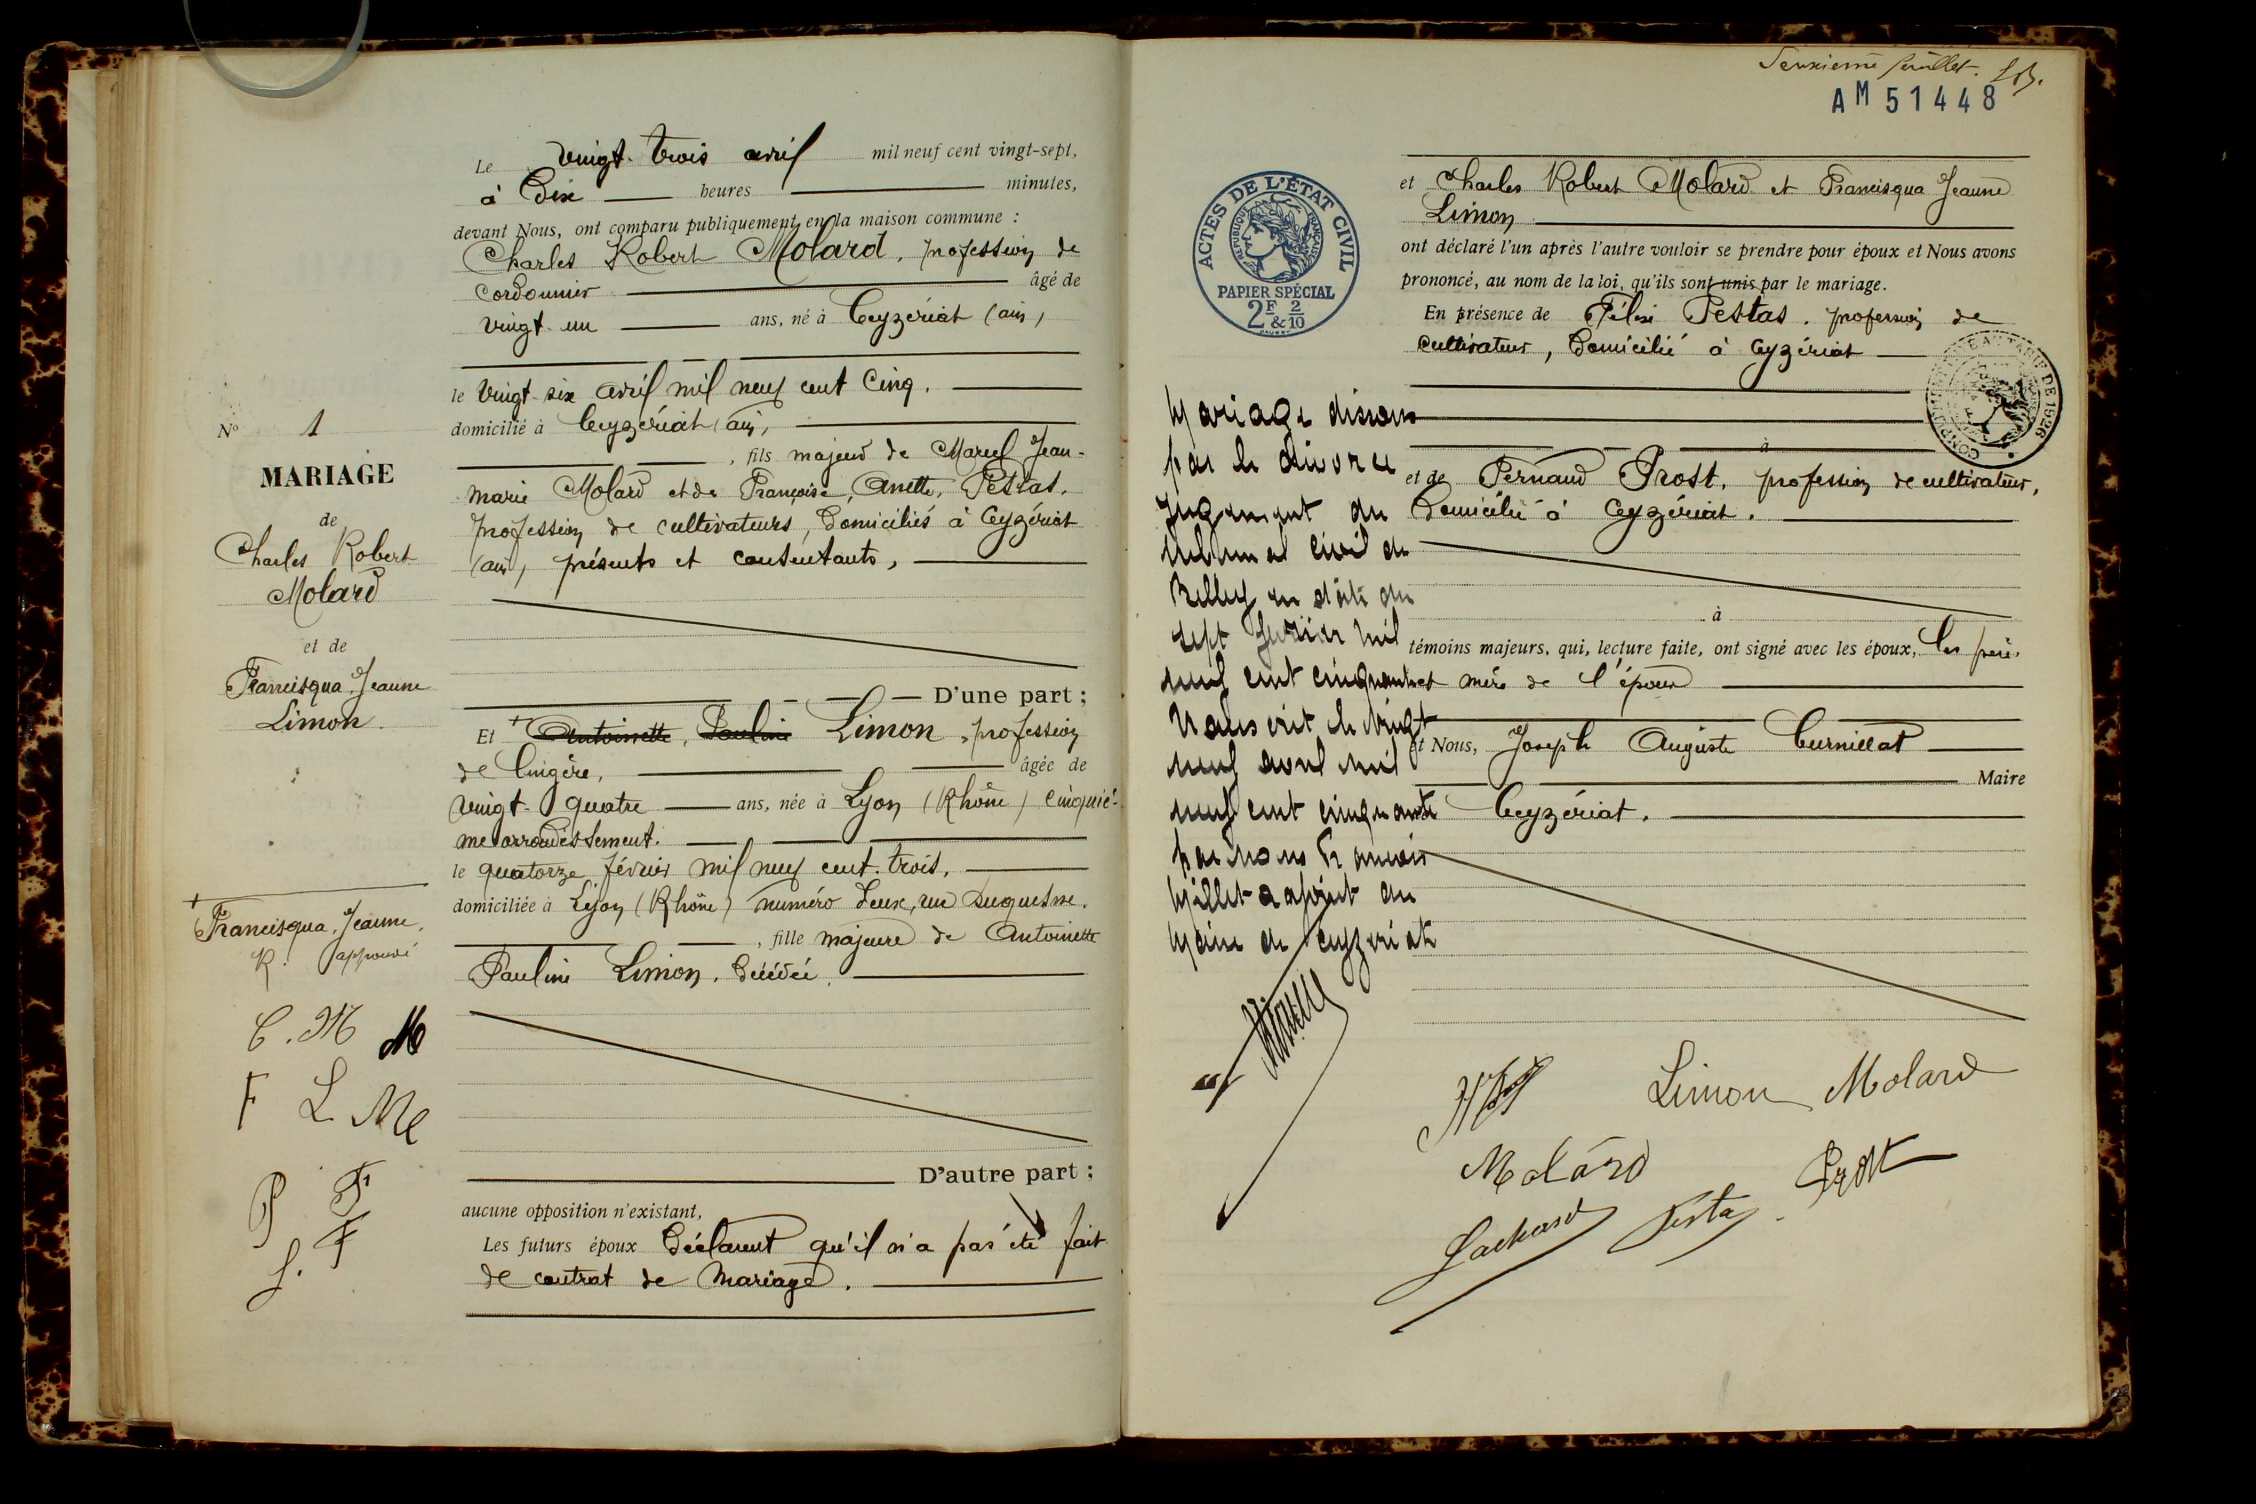 Le vingt-trois avril mil neuf cent vingt-sept,
à Dix heures minutes,
devant Nous, ont comparu publiquement en la maison commune :
Charles Robert Molard, profession de
cordonnier âgé de
vingt un ans, né à Ceyzériat (ain)
le vingt-six avril mil neuf cent cinq,
domicilié à Ceyzériat (ain),
, fils majeur de Marcel Jean-
Marie Molard et de Françoise, Anette, Pestas,
profession de cultivateurs, domiciliés à Ceyzériat
(ain), présents et consentants,
D'une part ;
Et + Antoinette, Pauline Limon, profession
de lingère, âgée de
vingt-quatre ans, née à Lyon (Rhône) cinquiè-
me arrondissement.
le quatorze février mil neuf cent trois,
domiciliée à Lyon (Rhône) numéro deux, rue Duquesne,
, fille majeure de Antoinette
Pauline Limon, décédée,
D'autre part ;
aucune opposition n'existant,
Les futurs époux déclarent qu'il n'a pas été fait
de contrat de mariage.
No 1
MARIAGE
de
Charles Robert
Molard
et de
Francisqua, Jeanne
Limon
+
Francisqua, Jeanne,
R. approuvé
C. M M
F L M
P F
F
Deuxième feuillet.
AM 51448
ACTES DE L'ÉTAT CIVIL
RÉPUBLIQUE FRANÇAISE
PAPIER SPÉCIAL
2F & 2/10
et Charles Robert Molard et Francisqua Jeanne
Limon
ont déclaré l'un après l'autre vouloir se prendre pour époux et Nous avons
prononcé, au nom de la loi, qu'ils sont unis par le mariage.
En présence de Félix Pestas, profession de
cultivateur, domicilié à Ceyzériat
DE 1926
à
et de Fernand Prost, profession de cultivateur,
domicilié à Ceyzériat.
à
témoins majeurs, qui, lecture faite, ont signé avec les époux, les père,
et mère de l'époux
et Nous, Joseph Auguste Curnillat
Maire
Ceyzériat.
Mariage dissous
par le divorce
jugement du
tribunal civil de
Belley en date du
sept février mil
neuf cent cinquante
Transcrit le vingt
neuf avril mil
neuf cent cinquante
par nous François
Millet adjoint au
Maire de Ceyzériat
Limon Molard
Molard Prost
Pestas